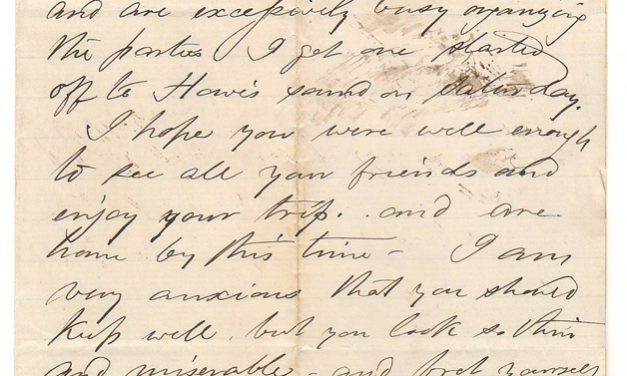 and are excessively busy organizing
the parties I got one started
off to Howe's sound on Saturday.
I hope you were well enough
to see all your friends and
enjoy your trip. and are
home by this time - I am
very anxious that you should
keep well. but you look so thin
and miserable - and fret yourself